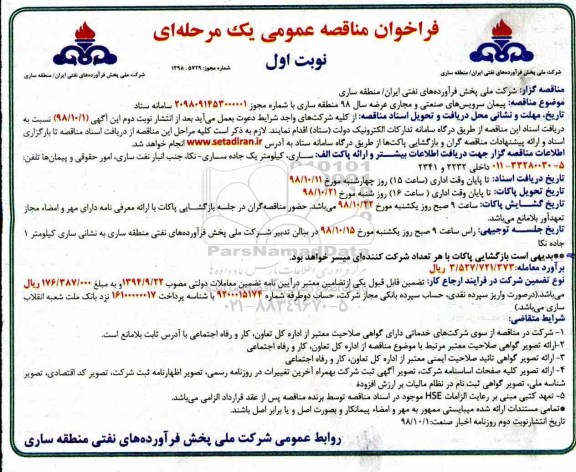 فراخوان مناقصه عمومی یک مرحله‌ای
نوبت اول
شماره مجوز: ۵۷۲۹ . ۱۳۹۸
شرکت ملی پخش فرآورده‌های نفتی ایران/ منطقه ساری
شرکت ملی پخش فرآورده‌های نفتی ایران/ منطقه ساری
مناقصه گزار: شرکت ملی پخش فرآورده‌های نفتی ایران/ منطقه ساری
موضوع مناقصه: پیمان سرویس‌های صنعتی و مجاری عرضه سال ۹۸ منطقه ساری با شماره مجوز ۲۰۹۸۰۹۱۴۵۳۰۰۰۰۰۱ سامانه ستاد
تاریخ، مهلت و نشانی محل دریافت و تحویل اسناد مناقصه: از کلیه شرکت‌های واجد شرایط دعوت بعمل می‌آید بعد از انتشار نوبت دوم این آگهی (۹۸/۱۰/۱) نسبت به
دریافت اسناد این مناقصه از طریق درگاه سامانه تدارکات الکترونیک دولت (ستاد) اقدام نمایند. لازم به ذکر است کلیه مراحل این مناقصه از دریافت اسناد مناقصه تا بارگزاری
اسناد و ارائه پیشنهادات مناقصه گران و بازگشایی پاکت‌ها از طریق درگاه سامانه ستاد به آدرس www.setadiran.ir انجام خواهد شد.
اطلاعات مناقصه گزار جهت دریافت اطلاعات بیشتر و ارائه پاکت الف: ساری، کیلومتر یک جاده ساری-نکا، جنب انبار نفت ساری، امور حقوقی و پیمان‌ها تلفن:
۰۱۱-۳۳۲۸۰۰۳۰-۵ داخلی ۲۲۳۲ و ۲۳۴۱
تاریخ دریافت اسناد: تا پایان وقت اداری (ساعت ۱۵) روز چهارشنبه مورخ ۹۸/۱۰/۱۱
تاریخ تحویل پاکات: تا پایان وقت اداری ( ساعت ۱۶) روز شنبه مورخ ۹۸/۱۰/۲۱
تاریخ گشایش پاکات: ساعت ۹ صبح روز یکشنبه مورخ ۹۸/۱۰/۲۲ می‌باشد حضور مناقصه‌گران در جلسه بازگشایی پاکات با ارائه معرفی نامه دارای مهر و امضاء مجاز
تعهدآور بلامانع می‌باشد.
تاریخ جلسه توجیهی: راس ساعت ۹ صبح روز یکشنبه مورخ ۹۸/۱۰/۱۵ در سالن تدبیر شرکت ملی پخش فرآورده‌های نفتی منطقه ساری به نشانی ساری کیلومتر ۱
جاده نکا
*بدیهی است بازگشایی پاکات با هر تعداد شرکت کننده‌ای میسر خواهد بود.
برآورد معامله: ۳/۵۲۷/۷۲۱/۳۷۳ ریال
نوع تضمین شرکت در فرآیند ارجاع کار: تضمین قابل قبول یکی ازتضامین معتبر درآیین نامه تضمین معاملات دولتی مصوب ۱۳۹۴/۹/۲۲ و به مبلغ ۱۷۶/۳۸۷/۰۰۰ ریال
می‌باشد.(درصورت واریز سپرده نقدی، حساب سپرده بانکی مجاز شرکت، حساب دوطرفه شماره ۹۲۰۰۰۱۵۱۷۴ با شناسه پرداخت ۱۶۱۰۰۰۰۰۰۱۷ نزد بانک ملت شعبه انقلاب
ساری می‌باشد.)
شرایط متقاضی:
۱- شرکت در مناقصه از سوی شرکت‌های خدماتی دارای گواهی صلاحیت معتبر از اداره کل تعاون، کار و رفاه اجتماعی با آدرس ثابت بلامانع است.
۲-ارائه تصویر گواهی صلاحیت معتبر مرتبط با موضوع مناقصه از اداره کل تعاون، کار و رفاه اجتماعی
۳- ارائه تصویر گواهی تائید صلاحیت ایمنی معتبر از اداره کل تعاون، کار و رفاه اجتماعی
۴- ارائه تصویر کلیه صفحات اساسنامه شرکت، تصویر آگهی ثبت شرکت بهمراه آخرین تغییرات در روزنامه رسمی، تصویر اظهارنامه ثبت شرکت، تصویر کد اقتصادی، تصویر
شناسه ملی، تصویر گواهی ثبت نام در نظام مالیات بر ارزش افزوده
۵- تعهد کتبی مبنی بر رعایت الزامات HSE موجود در اسناد مناقصه توسط برنده مناقصه پس از عقد قرارداد الزامی می‌باشد.
*تمامی مستندات ارائه شده میبایستی ممهور به مهر و امضاء پیمانکار و بصورت اصل و یا برابر اصل باشند.
تاریخ انتشارنوبت دوم روزنامه اخبار صنعت: ۹۸/۱۰/۱
روابط عمومی شرکت ملی پخش فرآورده‌های نفتی منطقه ساری
ParsNamadData
۰۲۱-۸۸۳۴۹۶۷۰-۵